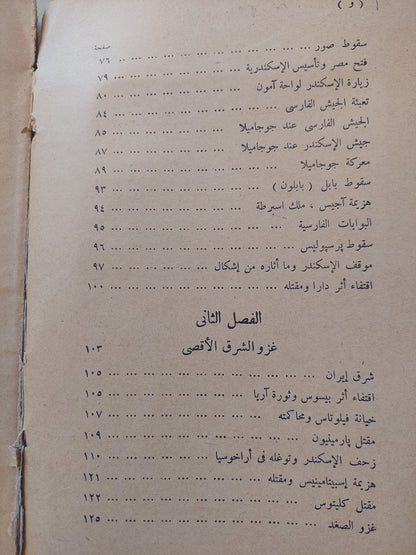 ( و )
صفحة
سقوط صور ... ٧٦
فتح مصر وتأسيس الإسكندرية ... ٧٩
زيارة الإسكندر لواحة آمون ... ٨٠
تعبئة الجيش الفارسى ... ٨٤
الجيش الفارسى عند جوجاميلا ... ٨٥
جيش الإسكندر عند جوجاميلا ... ٨٧
معركة جوجاميلا ... ٨٩
سقوط بابل ( بابلون ) ... ٩٣
هزيمة آجيس ، ملك اسبرطة ... ٩٤
البوابات الفارسية ... ٩٥
سقوط پرسپوليس ... ٩٦
موقف الإسكندر وما أثاره من إشكال ... ٩٧
اقتفاء أثر دارا ومقتله ... ١٠٠
الفصل الثانى
غزو الشرق الأقصى ... ١٠٣
شرق إيران ... ١٠٥
اقتفاء أثر بيسوس وثورة آريا ... ١٠٥
خيانة فيلوتاس ومحاكمته ... ١٠٧
مقتل پارمينيون ... ١٠٩
زحف الإسكندر وتوغله فى أراخوسيا ... ١١٠
هزيمة إسبيتامينيس ومقتله ... ١٢١
مقتل كليتوس ... ١٢٢
غزو الصغد ... ١٢٥